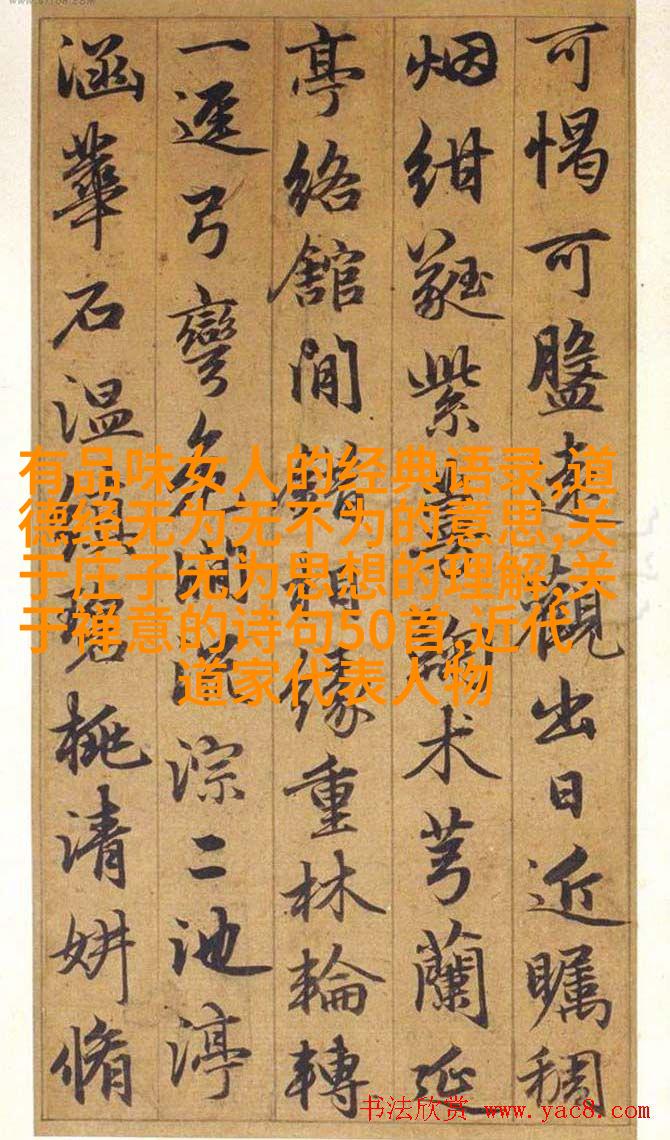 可愒可盥遠觀出日近矚稠
烟紺蕤紫术芎蘭延
亭絡館閒緣重林輪轉
一逕弓彎淙二池渟
涵華石温桃清妍脩
有品味女人的经典语录,道
德经无为无不为的意思,关
于庄子无为思想的理解,关
于禅意的诗句50首,近代
道家代表人物
书法欣赏 www.yac8.com